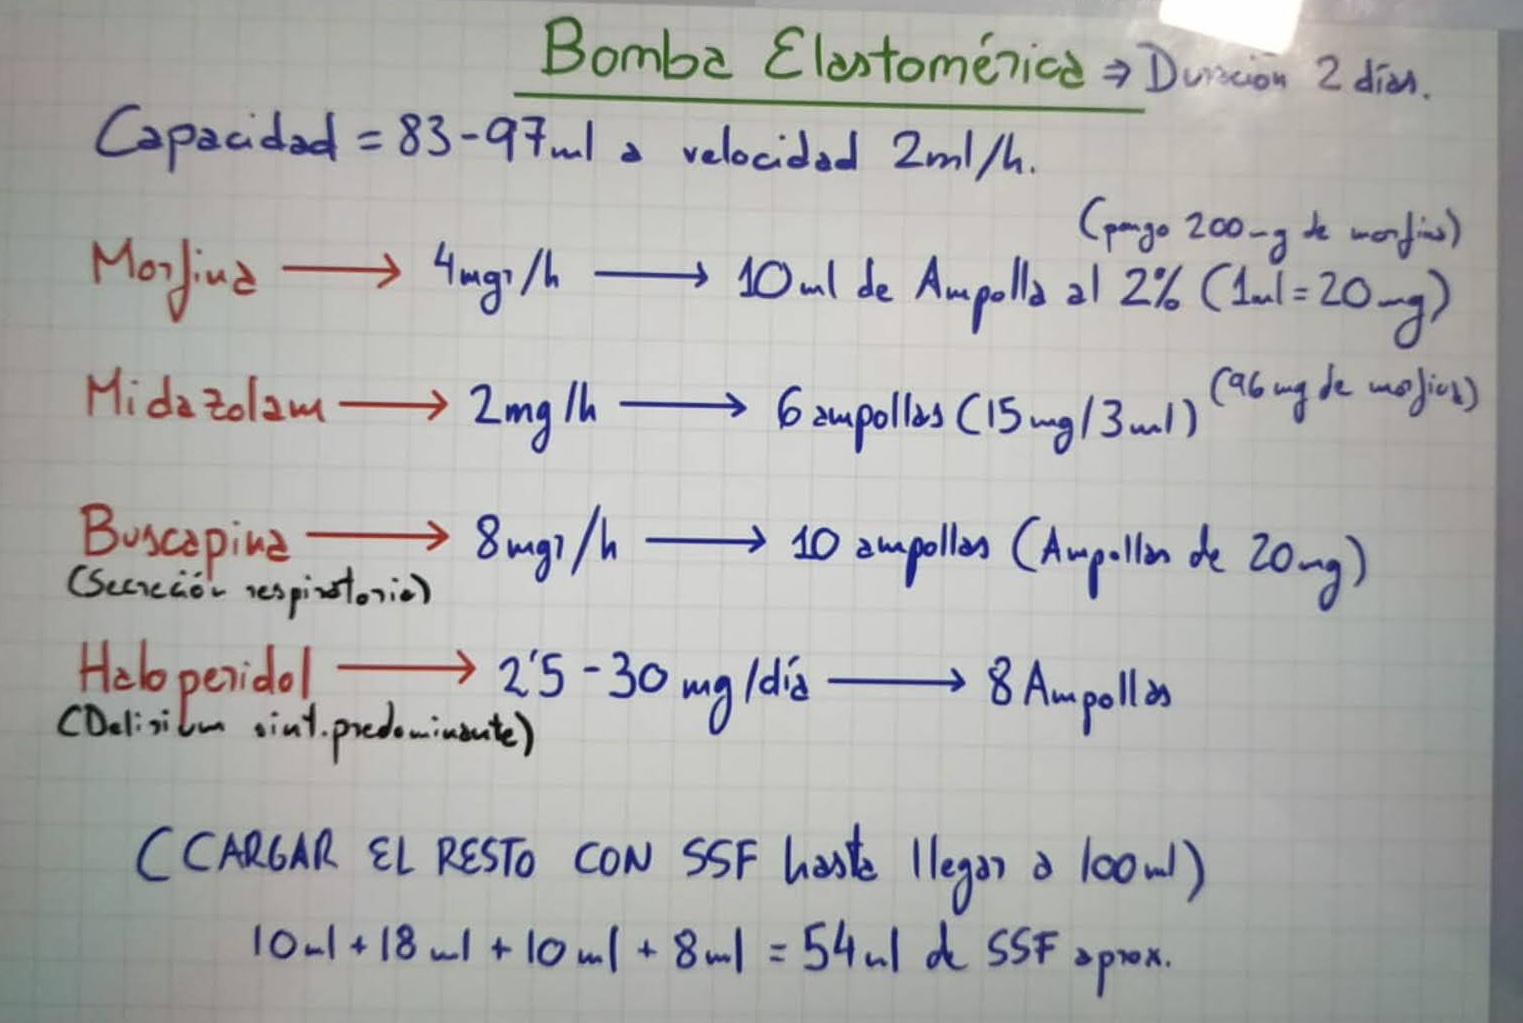 Bomba Elastomérica ⇒ Duración 2 días.
Capacidad = 83-97ml a velocidad 2ml/h.
(pongo 200mg de morfina)
Morfina → 4mgr/h → 10ml de Ampolla al 2% (1ml=20mg)
(96mg de morfina)
Midazolam → 2mg/h → 6 ampollas (15mg/3ml)
Buscapina → 8mgr/h → 10 ampollas (Ampollas de 20mg)
(Secreción respiratoria)
Haloperidol → 2'5-30 mg/día → 8 Ampollas
(Delirium sint. predominante)
(CARGAR EL RESTO CON SSF hasta llegar a 100ml)
10ml + 18ml + 10ml + 8ml = 54ml de SSF aprox.